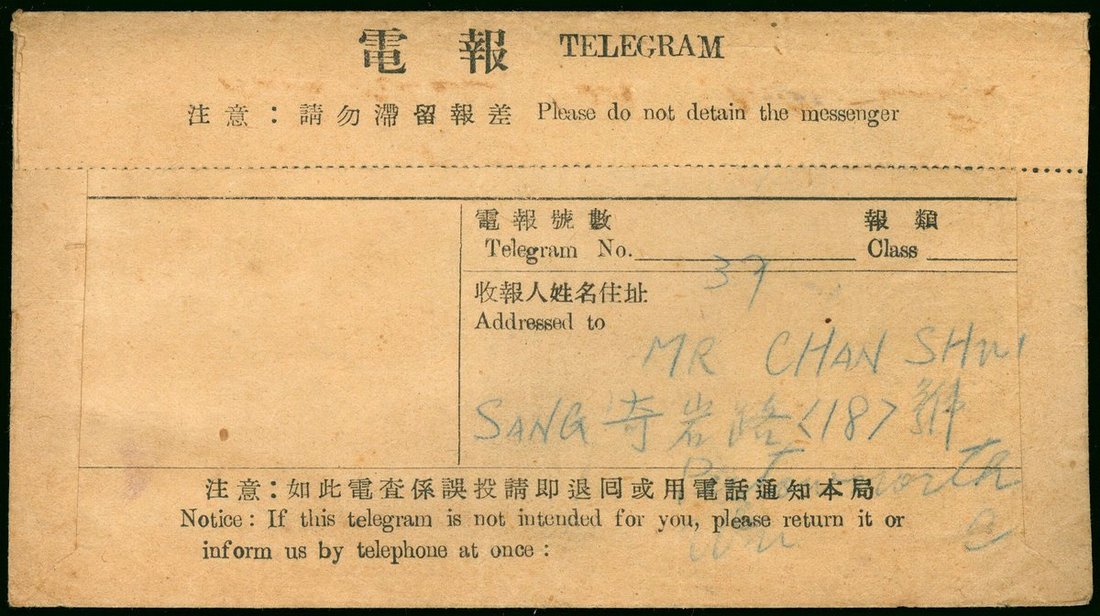 電報 TELEGRAM
注意：請勿滯留報差 Please do not detain the messenger
電報號數 報類
Telegram No. Class
37
收報人姓名住址
Addressed to
MR CHAN SHUI
SANG 奇岩路<18>號
注意：如此電查係誤投請即退回或用電話通知本局
Notice: If this telegram is not intended for you, please return it or
inform us by telephone at once: